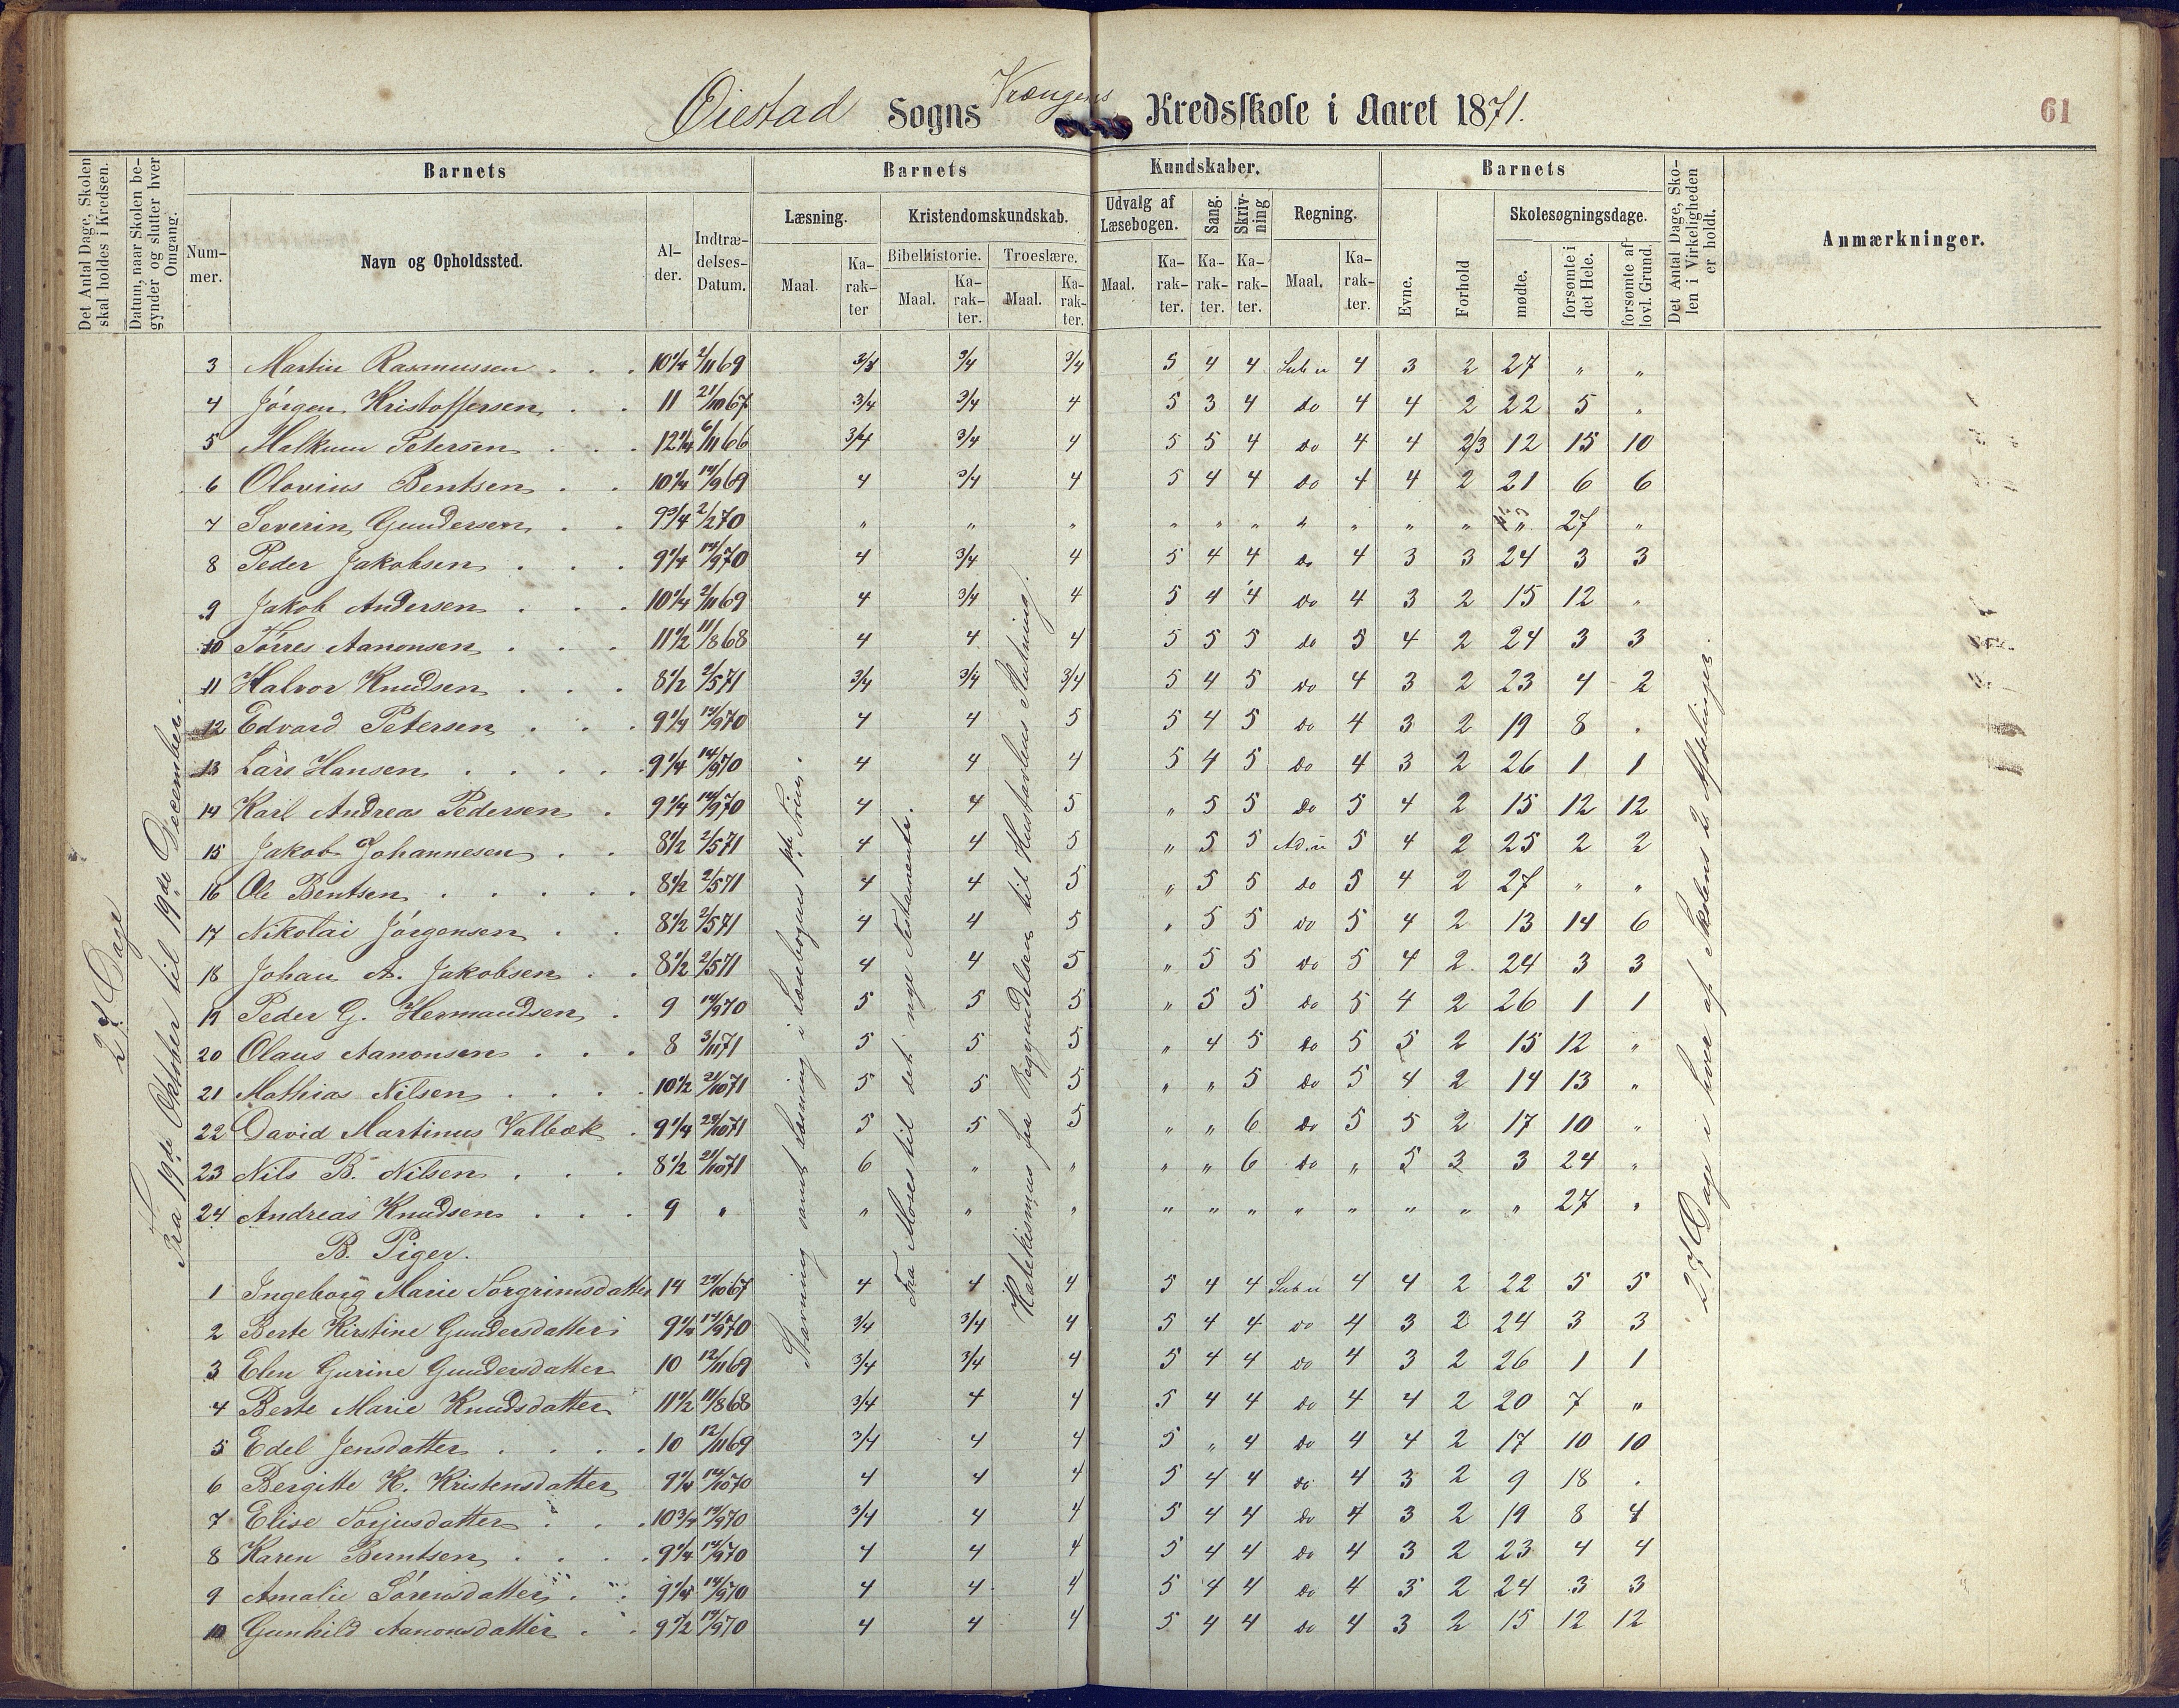 Øiestad Sogns Krængens Kredsskole i Aaret 1871.
61
Det Antal Dage, Skolen skal holdes i Kredsen.
Datum, naar Skolen begynder og slutter hver Omgang.
Barnets
Nummer.
Navn og Opholdssted.
Alder.
Indtrædelses-Datum.
Barnets Kundskaber.
Læsning.
Maal.
Karakter
Kristendomskundskab.
Bibelhistorie.
Maal.
Karakter.
Troeslære.
Maal.
Karakter.
Udvalg af Læsebogen.
Maal.
Karakter.
Sang.
Karakter.
Skrivning
Karakter.
Regning.
Maal.
Karakter.
Barnets
Evne.
Forhold
Skolesøgningsdage.
mødte.
forsømte i det Hele.
forsømte af lovl. Grund.
Det Antal Dage, Skolen i Virkeligheden er holdt.
Anmærkninger.
27 Dage
Fra 19de Oktober til 19de December.
Stavning samt Læsning i Læsebogens
Fra Moses til det nye Testamente.
Katekismus fra Begyndelsen til Hustavlens Slutning.
27 Dage i hver af Skolens 2 Afdelinger.
3 Martin Rasmussen 10 1/4 2/11 69 3/4 3/4 5 4 4 Sub u 4 3 2 27 " "
4 Jörgen Kristoffersen 11 21/10 67 3/4 3/4 4 5 3 4 do 4 4 2 22 5 "
5 Malkum Petersen 12 1/4 6/11 66 3/4 3/4 4 5 5 4 do 4 4 2/3 12 15 10
6 Olavius Bentsen 10 1/4 14/9 69 4 3/4 4 5 4 4 do 4 4 2 21 6 6
7 Severin Gundersen 9 3/4 2/2 70 " " " " " " " " " " " 27 "
8 Peder Jakobsen 9 1/4 14/9 70 4 3/4 4 5 4 4 do 4 3 3 24 3 3
9 Jakob Andersen 10 1/4 2/11 69 4 3/4 4 5 4 4 do 4 3 2 15 12 "
10 Törres Aanonsen 11 1/2 11/8 68 4 4 4 5 5 5 do 5 4 2 24 3 3
11 Halvor Knudsen 8 1/2 2/5 71 3/4 3/4 3/4 5 4 5 do 4 3 2 23 4 2
12 Edvard Petersen 9 1/4 14/9 70 4 4 5 5 4 5 do 4 3 2 19 8 "
13 Lars Hansen 9 1/4 14/9 70 4 4 4 5 4 5 do 4 3 2 26 1 1
14 Karl Andreas Pedersen 9 1/4 14/9 70 4 4 5 " 5 5 do 5 4 2 15 12 12
15 Jakob Johannesen 8 1/2 2/5 71 4 4 5 " 5 5 Ad. u 5 4 2 25 2 2
16 Ole Bentsen 8 1/2 2/5 71 4 4 5 " 5 5 do 5 4 2 27 " "
17 Nikolai Jörgensen 8 1/2 2/5 71 4 4 5 " 5 5 do 5 4 2 13 14 6
18 Johan A. Jakobsen 8 1/2 2/5 71 4 4 5 " 5 5 do 5 4 2 24 3 3
19 Peder G. Hermandsen 9 14/9 70 5 5 5 " 5 5 do 5 4 2 26 1 1
20 Olaus Aanonsen 8 3/11 71 5 5 5 " 4 5 do 5 5 2 15 12 "
21 Mathias Nilsen 10 1/2 21/10 71 5 5 5 " " 5 do 5 4 2 14 13 "
22 David Martinus Valbæk 9 1/4 5 5 5 " " 6 do 5 5 2 17 10 "
23 Nils B. Nilsen 8 1/2 21/10 71 6 " " " " 6 do " 5 3 3 24 "
24 Andreas Knudsen 9 " " " " " " " " " " " " 27 "
B. Piger.
1 Ingeborg Marie Torgrimsdatter 14 4 4 4 5 4 4 Sub u 4 4 2 22 5 5
2 Berte Kirstine Gundersdatter 9 1/4 14/9 70 3/4 3/4 4 5 4 4 do 4 3 2 24 3 3
3 Elen Gurine Gundersdatter 10 12/11 69 3/4 3/4 4 5 4 4 do 4 3 2 26 1 1
4 Berte Marie Knudsdatter 11 1/2 11/8 68 3/4 4 4 5 4 4 do 4 4 2 20 7 "
5 Edel Jensdatter 10 12/11 69 3/4 4 4 5 " 4 do 4 4 2 17 10 10
6 Bergitte K. Kristensdatter 9 1/4 14/10 70 4 4 4 5 4 4 do 4 3 2 9 18 "
7 Elise Torjusdatter 10 3/4 14/9 70 3/4 4 4 5 4 4 do 4 3 2 19 8 4
8 Karen Berntsen 9 1/4 14/9 70 4 4 4 5 4 4 do 4 3 2 23 4 4
9 Amalie Sörensdatter 9 1/4 14/9 70 4 4 4 5 4 4 do 4 3 2 24 3 3
10 Gunhild Aanonsdatter 9 1/2 14/9 70 4 4 4 5 4 4 do 4 3 2 15 12 12